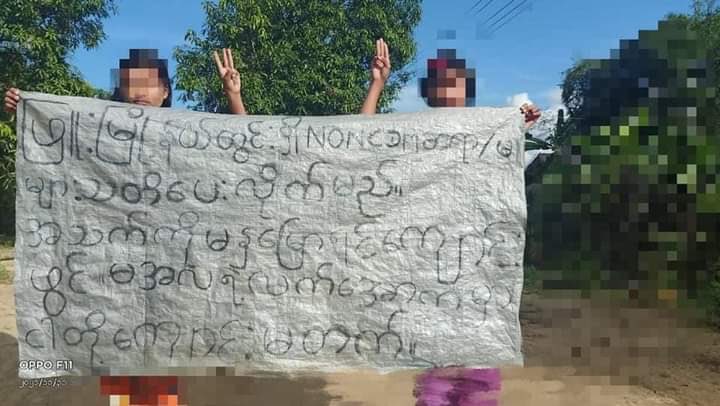 ဖြူးမြို့နယ်တွင်းရှိ NON CDM ဆရာ/မ
များသတိပေးလိုက်မည်။
အသက်ကိုမနှမြောရင်ကျောင်း
ဖွင့် မအလရဲ့လက်အောက်မှာ
ငါတို့ကျောင်းမတက်။
OPPO F11